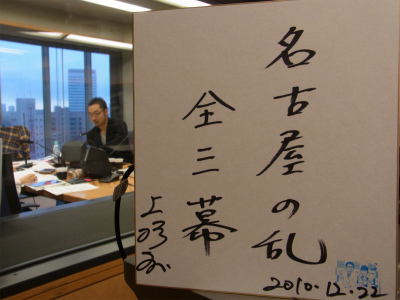 名古屋の乱
全三幕
2010.12.22